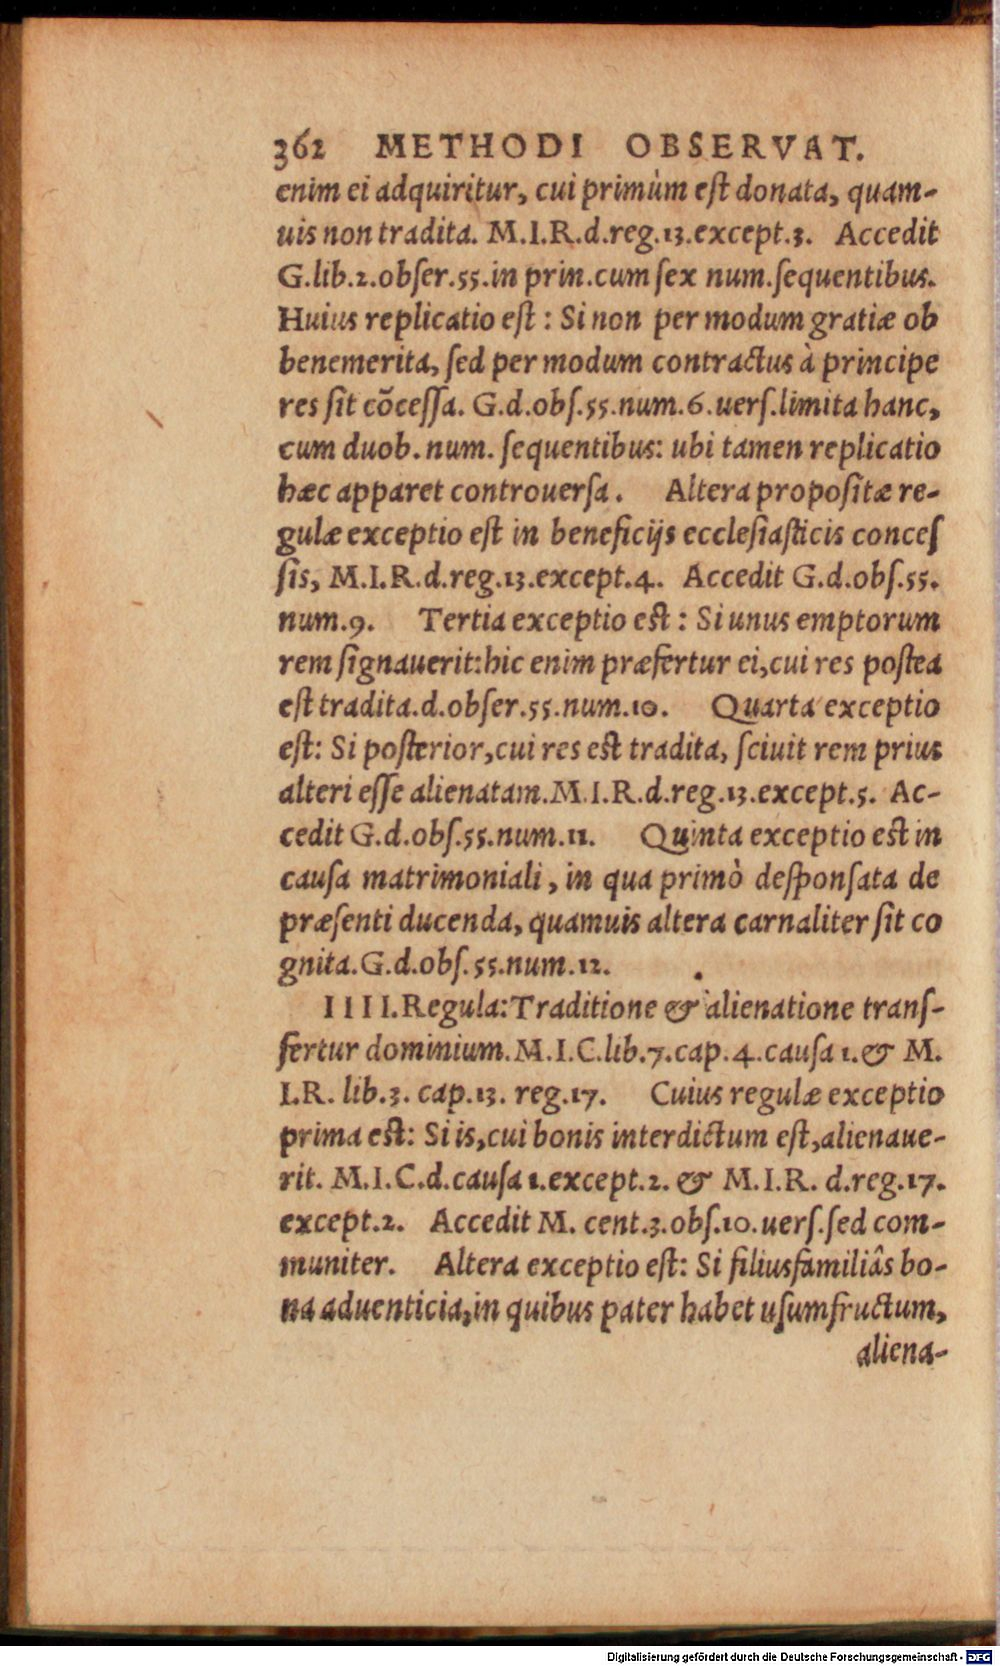 362 METHODI OBSERVAT.
enim ei adquiritur, cui primùm est donata, quam-
uis non tradita. M.I.R.d.reg.13.except.3. Accedit
G.lib.2.obser.55.in prin.cum sex num.sequentibus.
Huius replicatio est : Si non per modum gratiæ ob
benemerita, sed per modum contractus à principe
res sit cõcessa. G.d.obs.55.num.6.uers.limita hanc,
cum duob. num. sequentibus: ubi tamen replicatio
hæc apparet controuersa. Altera propositæ re-
gulæ exceptio est in beneficijs ecclesiasticis conces
sis, M.I.R.d.reg.13.except.4. Accedit G.d.obs.55.
num.9. Tertia exceptio est : Si unus emptorum
rem signauerit:hic enim præfertur ei,cui res postea
est tradita.d.obser.55.num.10. Quarta exceptio
est: Si posterior,cui res est tradita, sciuit rem prius
alteri esse alienatam.M.I.R.d.reg.13.except.5. Ac-
cedit G.d.obs.55.num.11. Quinta exceptio est in
causa matrimoniali, in qua primò desponsata de
præsenti ducenda, quamuis altera carnaliter sit co
gnita.G.d.obs.55.num.12.
IIII.Regula:Traditione & alienatione trans-
fertur dominium.M.I.C.lib.7.cap.4.causa 1.& M.
I.R. lib.3. cap.13. reg.17. Cuius regulæ exceptio
prima est: Si is,cui bonis interdictum est,alienaue-
rit. M.I.C.d.causa 1.except.2. & M.I.R. d.reg.17.
except.2. Accedit M. cent.3.obs.10.uers.sed com-
muniter. Altera exceptio est: Si filiusfamiliâs bo-
na aduenticia,in quibus pater habet usumfructum,
aliena-
Digitalisierung gefördert durch die Deutsche Forschungsgemeinschaft - DFG